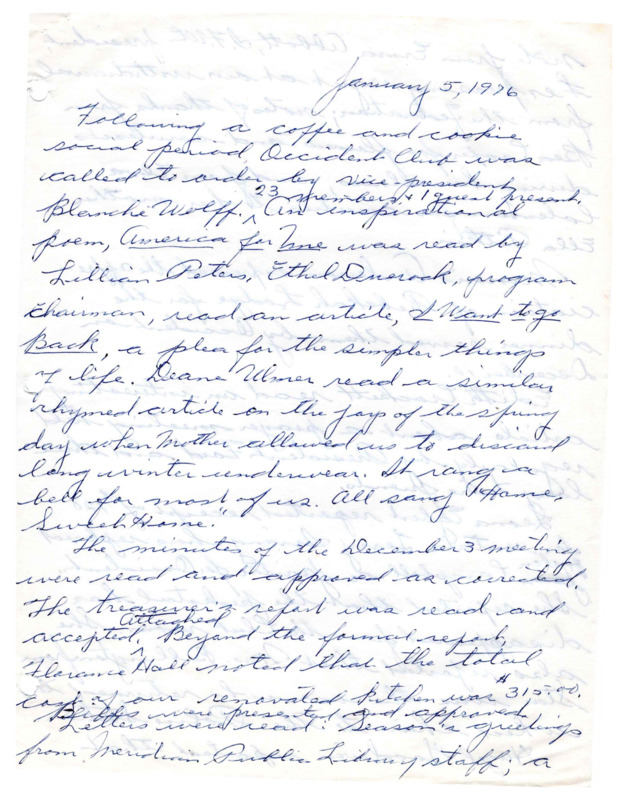 January 5, 1976
Following a coffee and cookie
social period, Occident Club was
called to order by vice president,
23 members & 1 guest present.
Blanche Wolff. An inspirational
poem, America for Me was read by
Lillian Peters. Ethel, program
chairman, read an article, I Want to go
Back, a plea for the simpler things
of life. Deane Ulmer read a similar
rhymed article on the joys of the spring
day when Mother allowed us to discard
long winter underwear. It rang a
bell for most of us. All sang "Home,
Sweet Home."
The minutes of the December 3 meeting
were read and approved as corrected.
The treasurer's report was read and
Attached
accepted. Beyond the formal report,
Florence Hall noted that the total
cost of our renovated kitchen was $315.00.
Bills were presented and approved.
Letters were read: Season's greetings
from Meridian Public Library staff; a